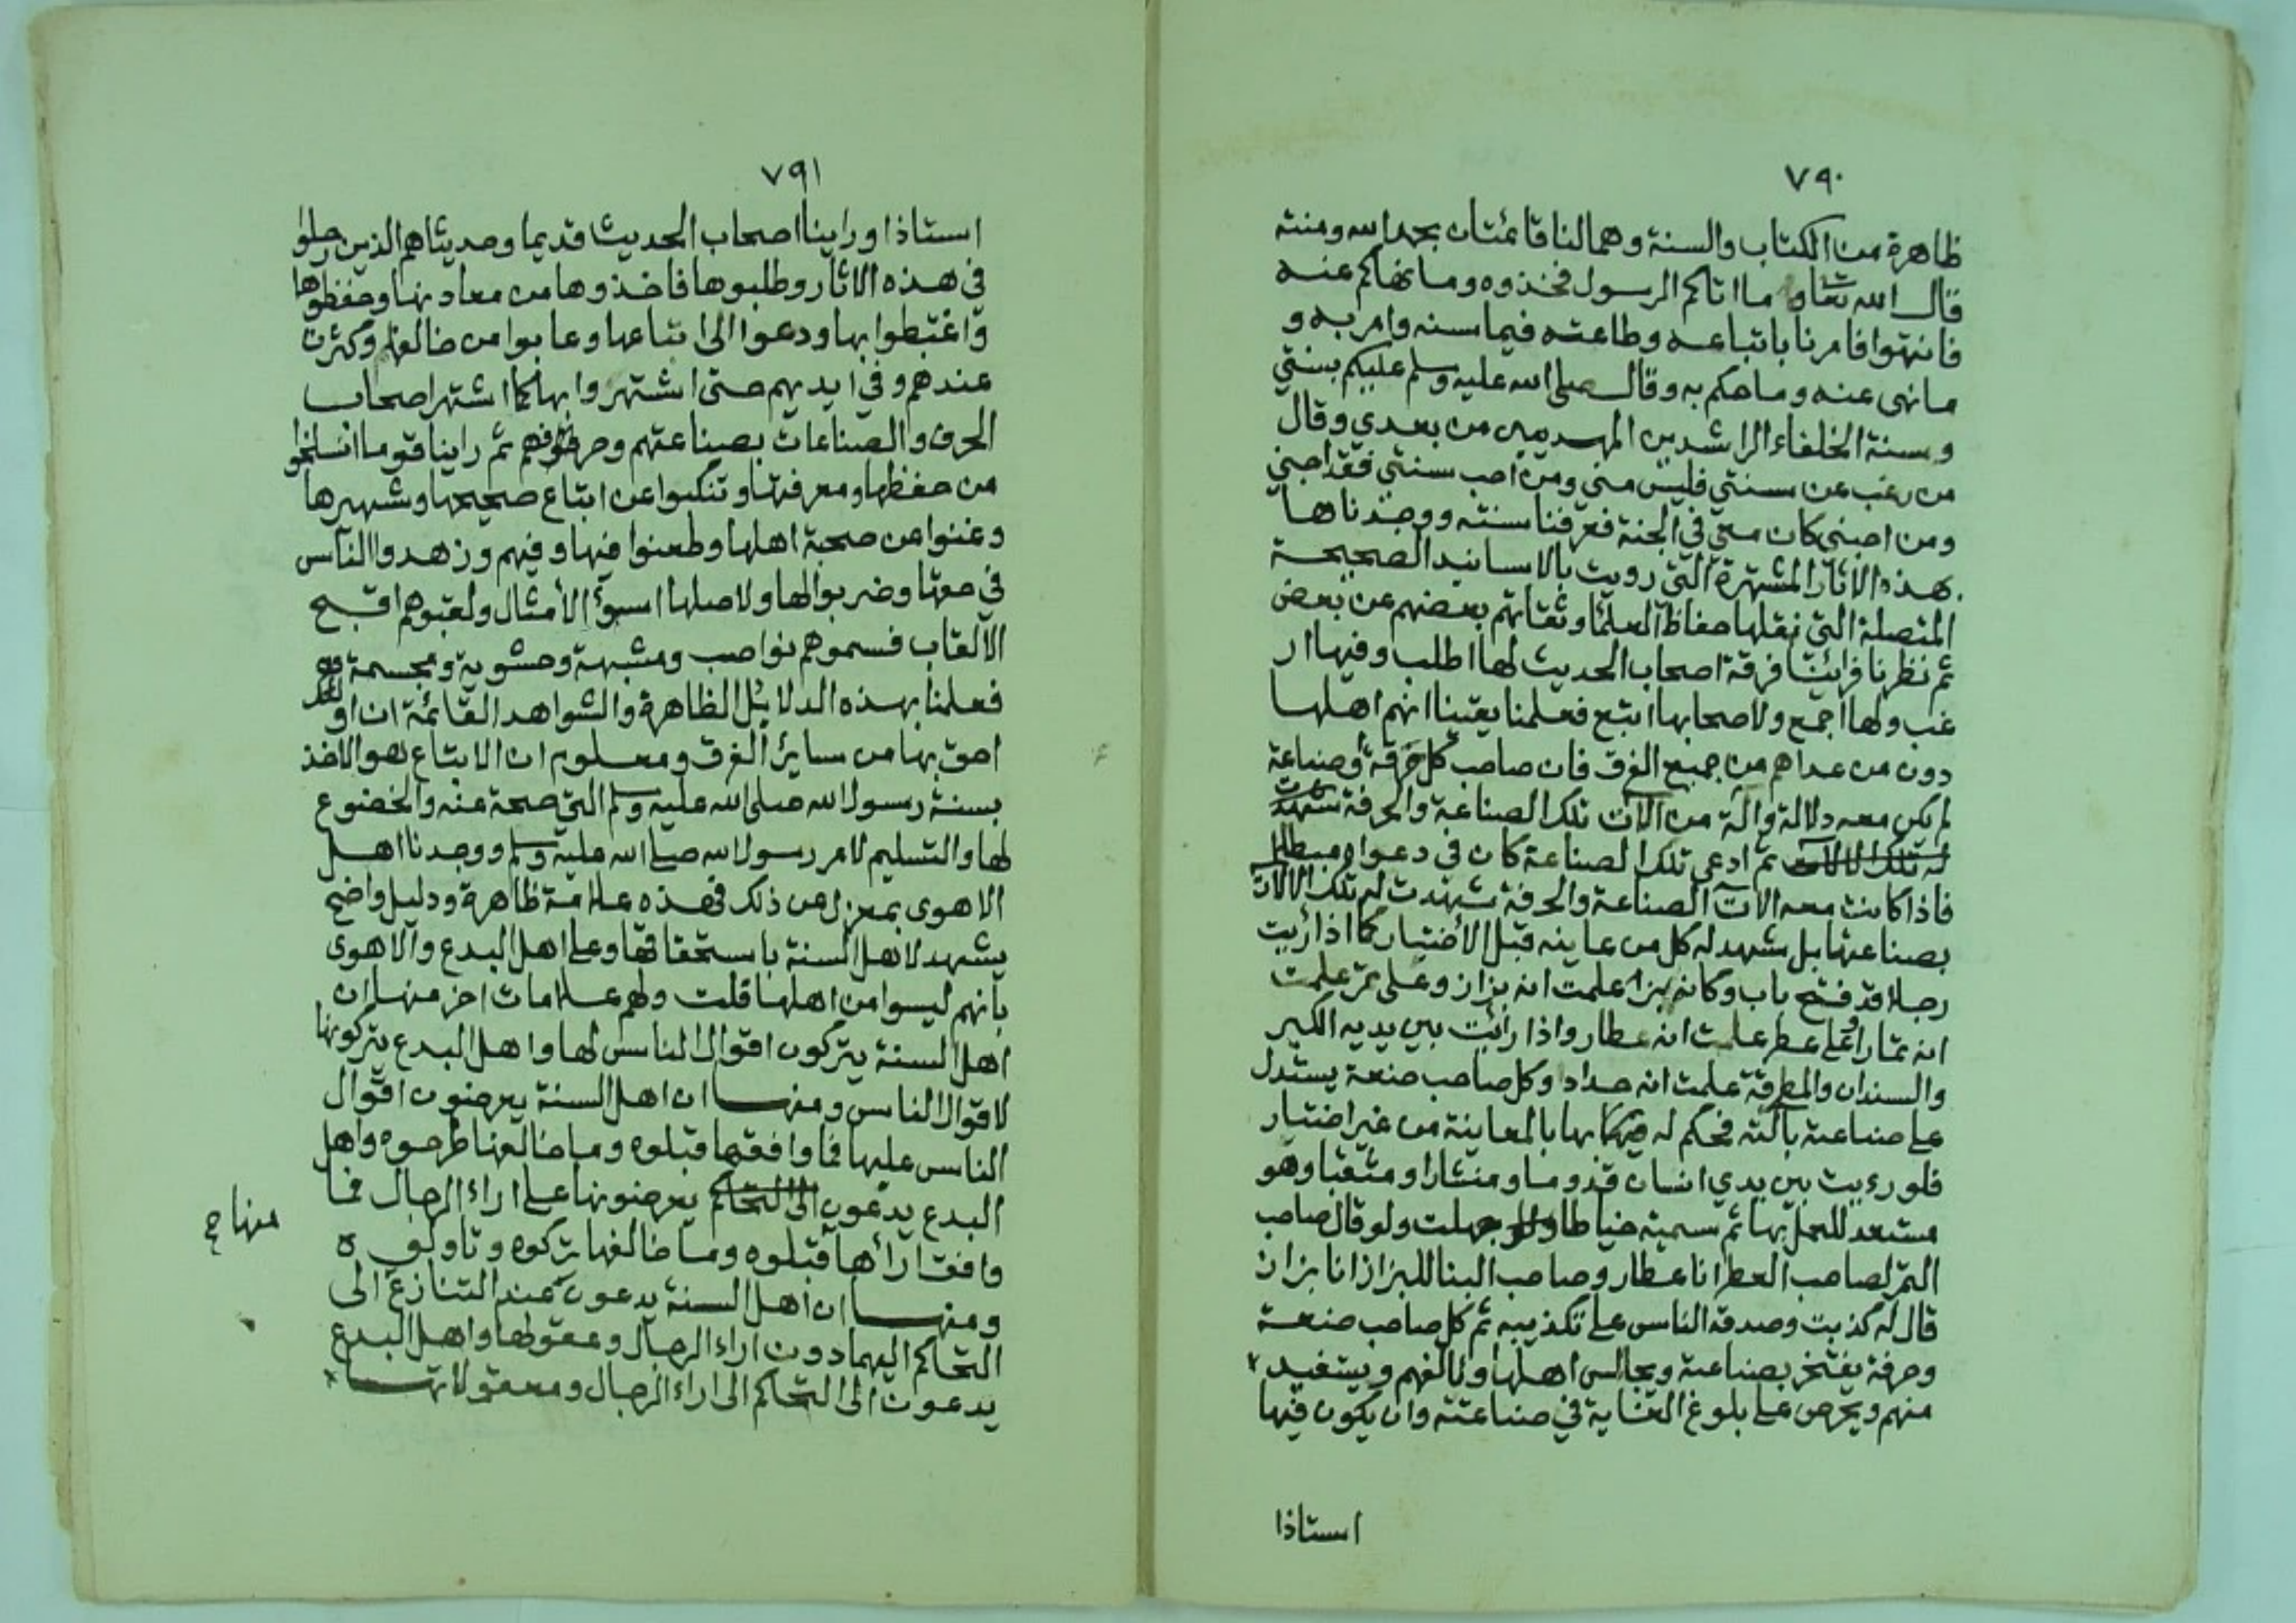 ٧٩٠
ظاهرة من الكتاب والسنة وهما لنا قائمتان بحمد الله ومنته
قال الله تعالى وما اتاكم الرسول فخذوه وما نهاكم عنه
فانتهوا فامرنا باتباعه وطاعته فيما سنه وامر به و
ما نهى عنه وما حكم به وقال صلى الله عليه وسلم عليكم بسنتي
وسنة الخلفاء الراشدين المهديين من بعدي وقال
من رغب عن سنتي فليس مني ومن احب سنتي فقد احبني
ومن احبني كان معي في الجنة فعرفنا سنته ووجدناها
بهذه الاثار المشتهرة التي رويت بالاسانيد الصحيحة
المتصلة التي نقلها حفاظ العلماء وثقاتهم بعضهم عن بعض
ثم نظرنا فرائينا فرقة اصحاب الحديث لها اطلب وفيها ار
غب ولها اجمع ولاصحابها اتبع فعلمنا يقينا انهم اهلها
دون من عداهم من جميع الفرق فان صاحب كل حرفة أو صناعة
لم يكن معه دلالة وآلة من آلات تلك الصناعة والحرفة
ثم ادعى تلك الصناعة كان في دعواه مبطلا
فاذا كانت معه الات الصناعة والحرفة شهدت له تلك الالات
بصناعتها بل شهد له كل من عاينه قبل الأختبار كما اذا رأيت
رجلا قد فتح باب دكانه بزا علمت انه بزاز وعلى تمر علمت
انه تمار او على عطر علمت انه عطار واذا رائت بين يديه الكير
والسندان والمطرقة علمت انه حداد وكل صاحب صنعة يستدل
على صناعته بآلته فحكم له بها بالمعاينة من غير اختبار
فلو رءيت بين يدي انسان قدوما ومنشارا ومثقبا وهو
مستعد للعمل بها ثم سميته خياطا جهلت ولو قال صاحب
التمر لصاحب العطر انا عطار وصاحب البنا للبزاز انا بزاز
قال له كذبت وصدقه الناس على تكذيبه ثم كل صاحب صنعة
وحرفة يفتخر بصناعته ويجالس اهلها ولا يالفهم ويستفيد
منهم ويحرص على بلوغ الغاية في صناعته وان يكون فيها
استاذا
٧٩١
استاذا وراينا اصحاب الحديث قديما وحديثا هم الذين رحلوا
في هذه الاثار وطلبوها فاخذوها من معادنها وحفظوها
واغتبطوا بها ودعوا الى اتباعها وعابوا من خالفها وكثرت
عندهم وفي ايديهم حتى اشتهروا بها كما اشتهر اصحاب
الحرف والصناعات بصناعتهم وحرفهم ثم راينا قوما انسلخوا
من حفظها ومعرفتها وتنكبوا عن اتباع صحيحها وشهيرها
وغنوا عن صحبة اهلها وطعنوا فيها وفيهم وزهدوا الناس
في حقها وضربوا لها ولاهلها اسوأ الأمثال ولقبوهم اقبح
الالقاب فسموهم نواصب ومشبهة وحشوية ومجسمة
فعلمنا بهذه الدلايل الظاهرة والشواهد القائمة ان اولئك
احق بها من ساير الفرق ومعلوم ان الاتباع هو الاخذ
بسنة رسول الله صلى الله عليه وسلم التي صحة عنه والخضوع
لها والتسليم لامر رسول الله صلى الله عليه وسلم ووجدنا اهل
الاهوى بمعزل عن ذلك فهذه علامة ظاهرة ودليل واضح
يشهد لاهل السنة باستحقاقها وعلى اهل البدع والاهوى
بأنهم ليسوا من اهلها قلت ولهم علامات اخر منها ان
اهل السنة يتركون اقوال الناس لها واهل البدع يتركونها
لاقوال الناس ومنها ان اهل السنة يعرضون اقوال
الناس عليها فما وافقها قبلوه وما خالفها طرحوه واهل
البدع يدعون الى التحاكم يعرضونها على اراء الرجال فما
وافق ارأها قبلوه وما خالفها تركوه وتاولوه
ومنها ان اهل السنة يدعون عند التنازع الى
التحاكم اليهما دون اراء الرجال وعقولها واهل البدع
يدعون الى التحاكم الى اراء الرجال ومعقولاتها
منهاج